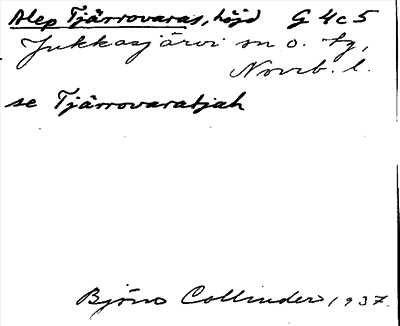 Alep Tjårrovaras, höjd G 4c5
Jukkasjärvi sn o. tg,
Norrb. l.
se Tjårrovaratjah
Björn Collinder 1937.